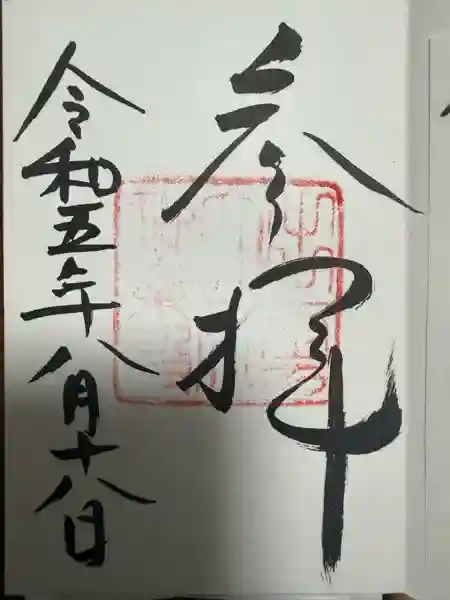 参拝
令和五年八月十八日